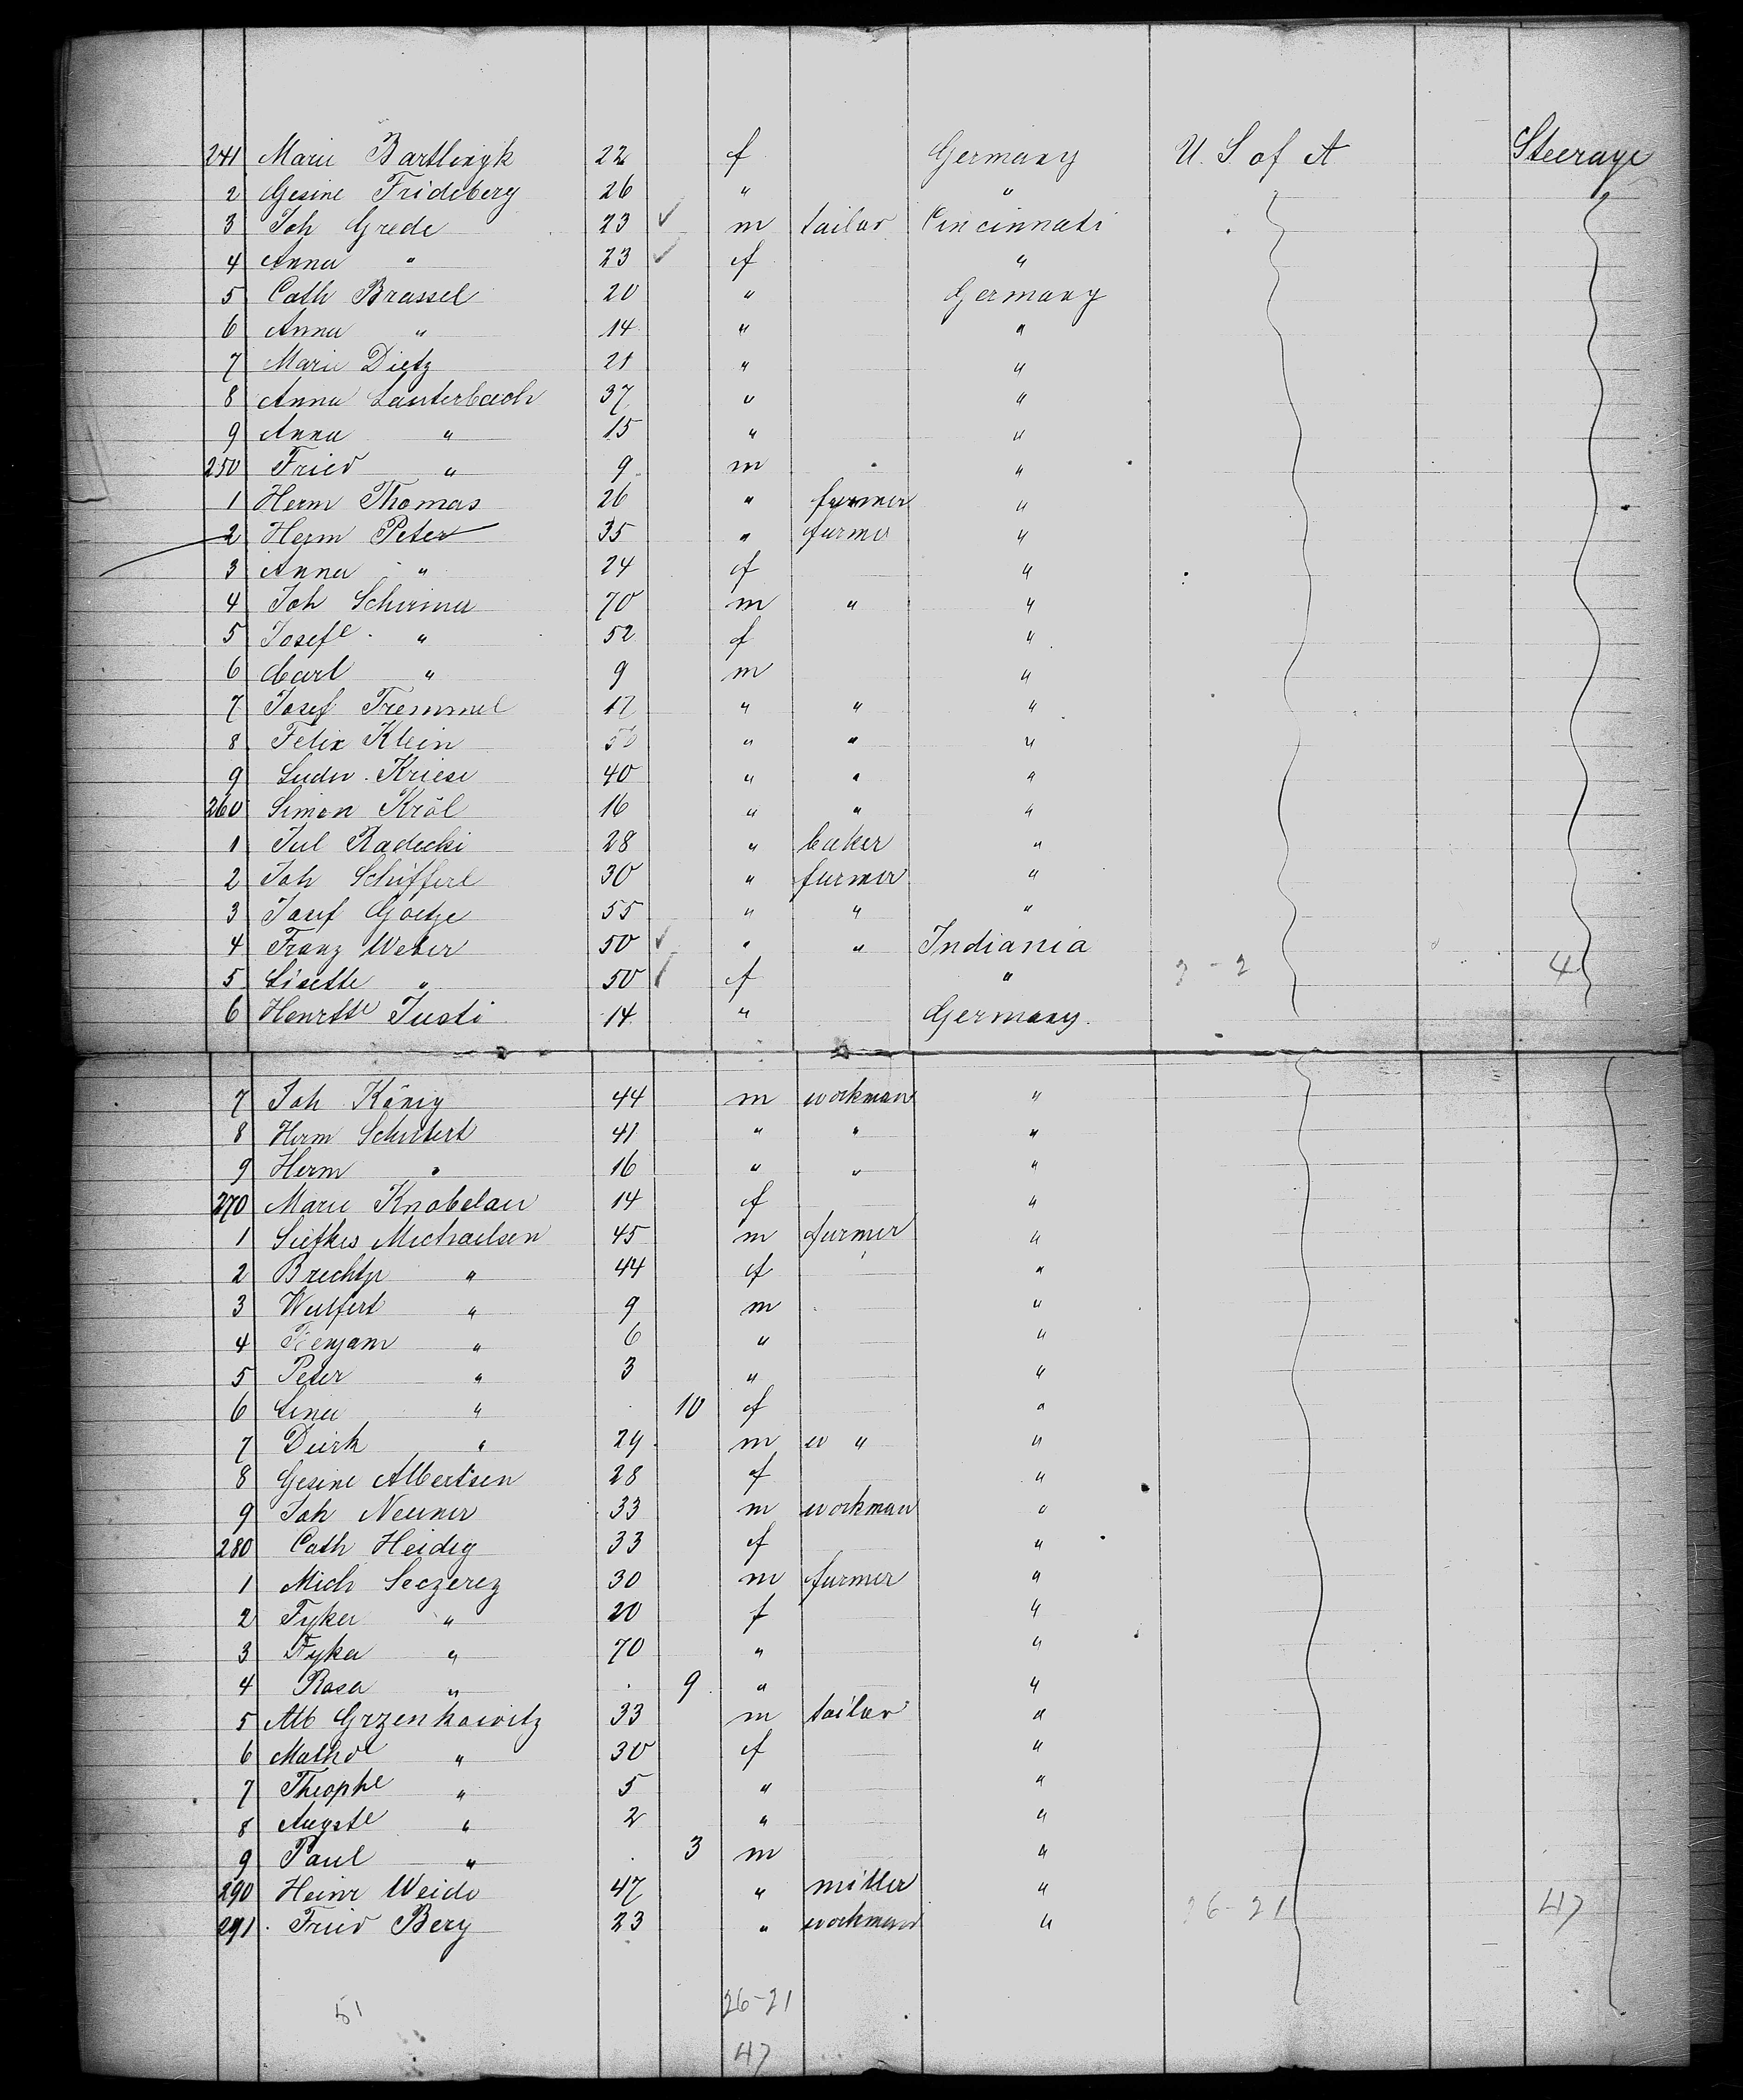 241 Marie Bartlingk 22 f Germany U. S of A Steerage
2 Gesine Frideberg 26 " "
3 Joh Grede 23 ✓ m tailor Cincinnati
4 Anna " 23 ✓ f "
5 Cath Brassel 20 " Germany
6 Anna " 14 " "
7 Marie Dietz 21 " "
8 Anna Lauterbach 37 " "
9 Anna " 15 " "
250 Fried " 9 m "
1 Herm Thomas 26 " farmer "
2 Herm Peter 35 " farmer "
3 Anna " 24 f "
4 Joh Schirmer 70 m " "
5 Josefe " 52 f "
6 Carl " 9 m "
7 Josef Tremmel 17 " " "
8 Felix Klein 50 " " "
9 Ludw. Kriese 40 " " "
260 Simon Król 16 " " "
1 Jul Radecki 28 " baker "
2 Joh Schifferl 30 " farmer "
3 Josef Goetze 55 " " "
4 Franz Weber 50 ✓ " " Indiania
5 Lisette " 50 ✓ f " 2-2 4
6 Henrtte Justi 14 " Germany.
7 Joh König 44 m workman "
8 Herm Schubert 41 " " "
9 Herm " 16 " " "
270 Marie Knobelau 14 f "
1 Siefkes Michaelsen 45 m farmer "
2 Brechtje " 44 f "
3 Wulfert " 9 m "
4 Benjam " 6 " "
5 Peter " 3 " "
6 Lina " 10 f "
7 Dirk " 29 m w " "
8 Gesine Albertsen 28 f "
9 Joh Neuner 33 m workman "
280 Cath Heidig 33 f "
1 Mich Seczerez 30 m farmer "
2 Fyker " 20 f "
3 Fyka " 70 " "
4 Rosa " 9 " "
5 Alb Grzenkowitz 33 m tailor "
6 Mathe " 30 f "
7 Theophe " 5 " "
8 Augste " 2 " "
9 Paul " 3 m "
290 Heinr Weide 47 " miller "
291. Fried Berg 23 " workman " 26-21 47
51 26-21
47